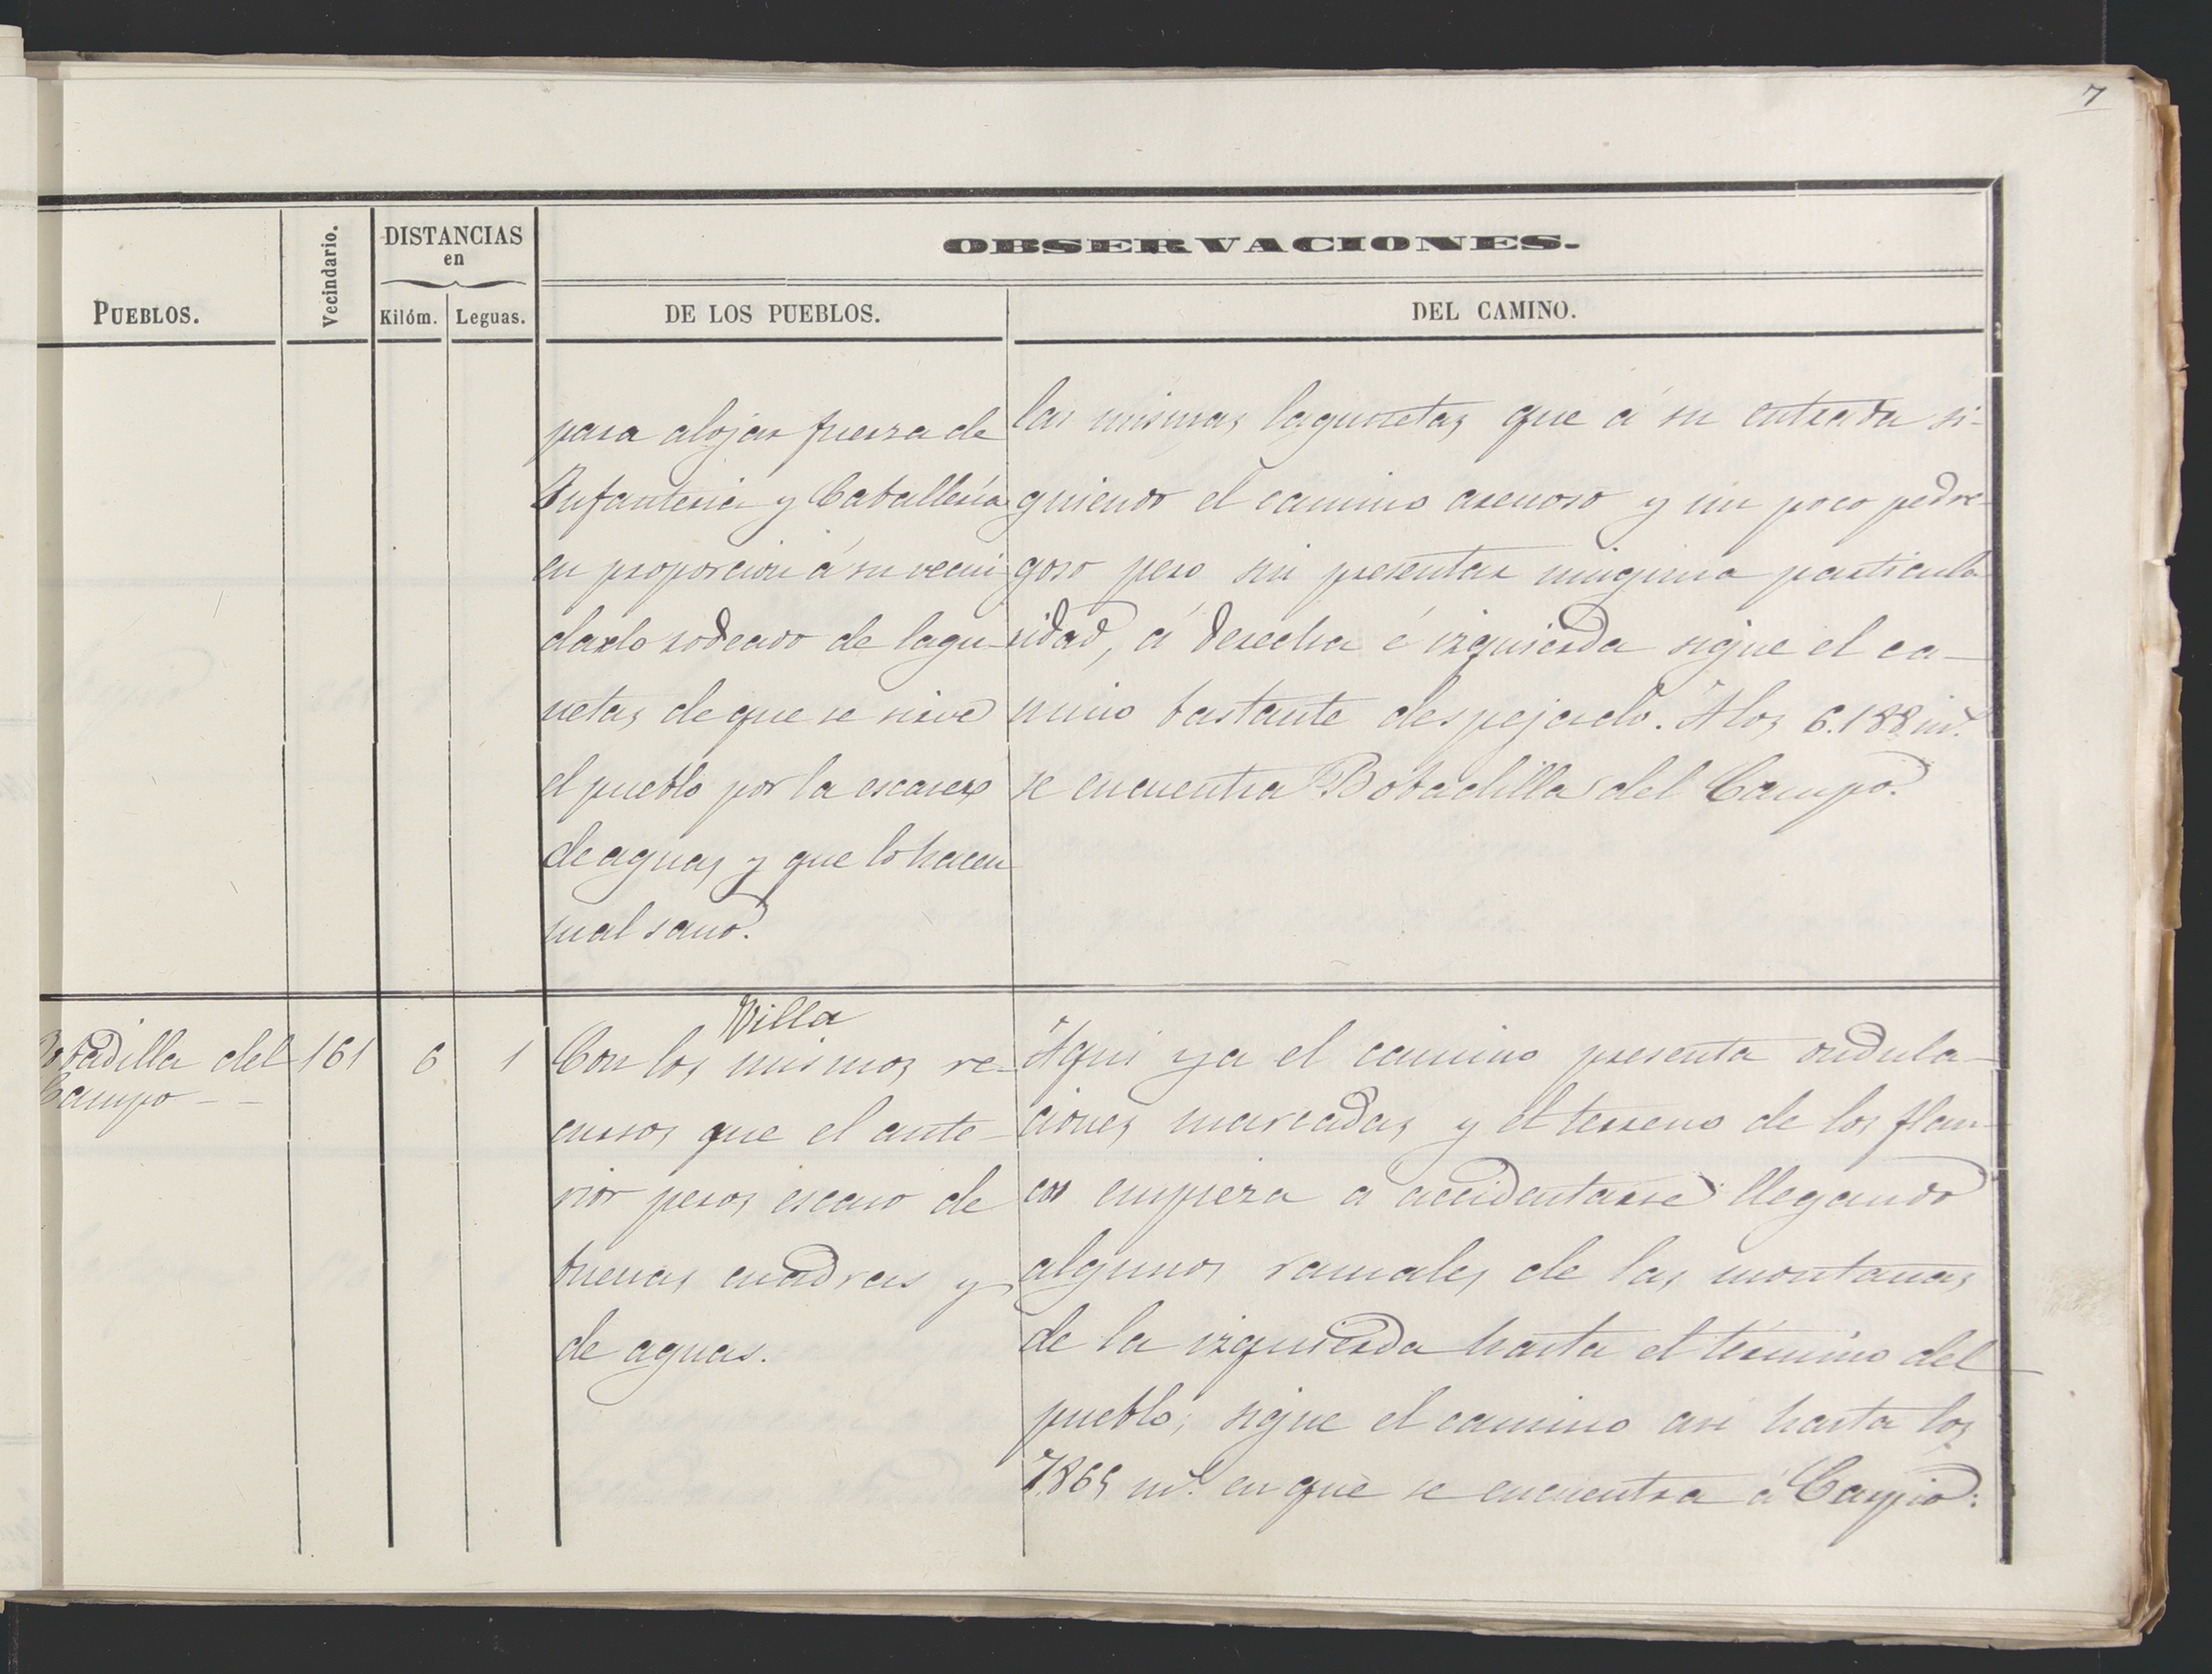 7
OBSERVACIONES.
PUEBLOS.
Vecindario.
DISTANCIAS
en
Kilóm.
Leguas.
DE LOS PUEBLOS.
DEL CAMINO.
para alojar fuerza de
Infanteria y Caballería
en proporcion á su vecin
dardo rodeado de lagu-
netas de que se sirve
el pueblo por la escasez
de aguas y que lo hacen
mal sano.
las mismas lagunetas que á su entrada si-
guiendo el camino arenoso y un poco pedre-
goso pero sin presentar ninguna particula
ridad, á derecha é izquierda sigue el ca-
mino bastante despejado. A los 6.188 m.
se encuentra Bobadilla del Campo.
Bobadilla del
Campo - -
161
6
1
Villa
Con los mismos re-
cursos que el ante-
rior peros escaso de
buenas cuadras y
de aguas.
Aqui ya el camino presenta ondula-
ciones marcadas y el terreno de los flan-
cos empieza a accidentarse llegando
algunos ramales de las montanas
de la izquierda hasta el término del
pueblo, sigue el camino asi hasta los
7.865 m. en que se encuentra á Carpio: